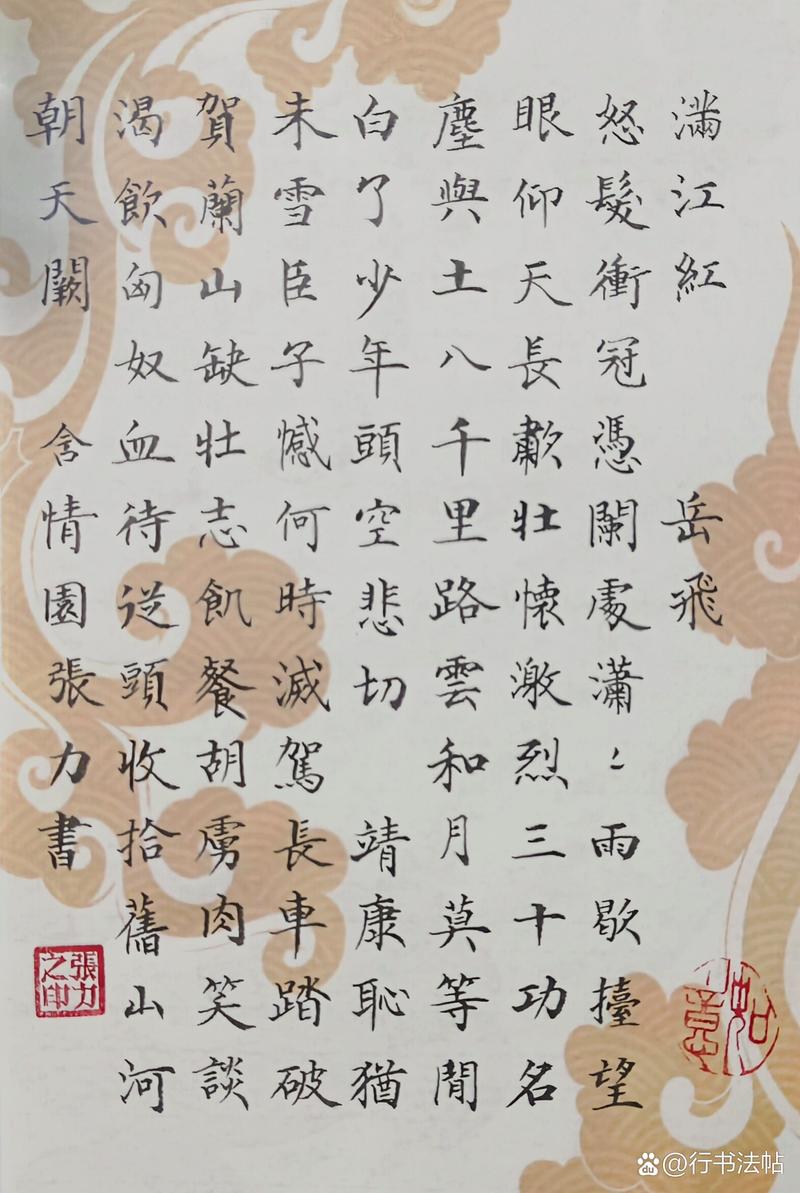 滿江紅 岳飛
怒髮衝冠憑闌處瀟〻雨歇擡望
眼仰天長歗壯懷激烈三十功名
塵與土八千里路雲和月莫等閒
白了少年頭空悲切 靖康恥猶
未雪臣子憾何時滅駕長車踏破
賀蘭山缺壯志飢餐胡虜肉笑談
渴飲匈奴血待從頭收拾舊山河
朝天闕 含情園張力書
張力之印
如意
@行书法帖